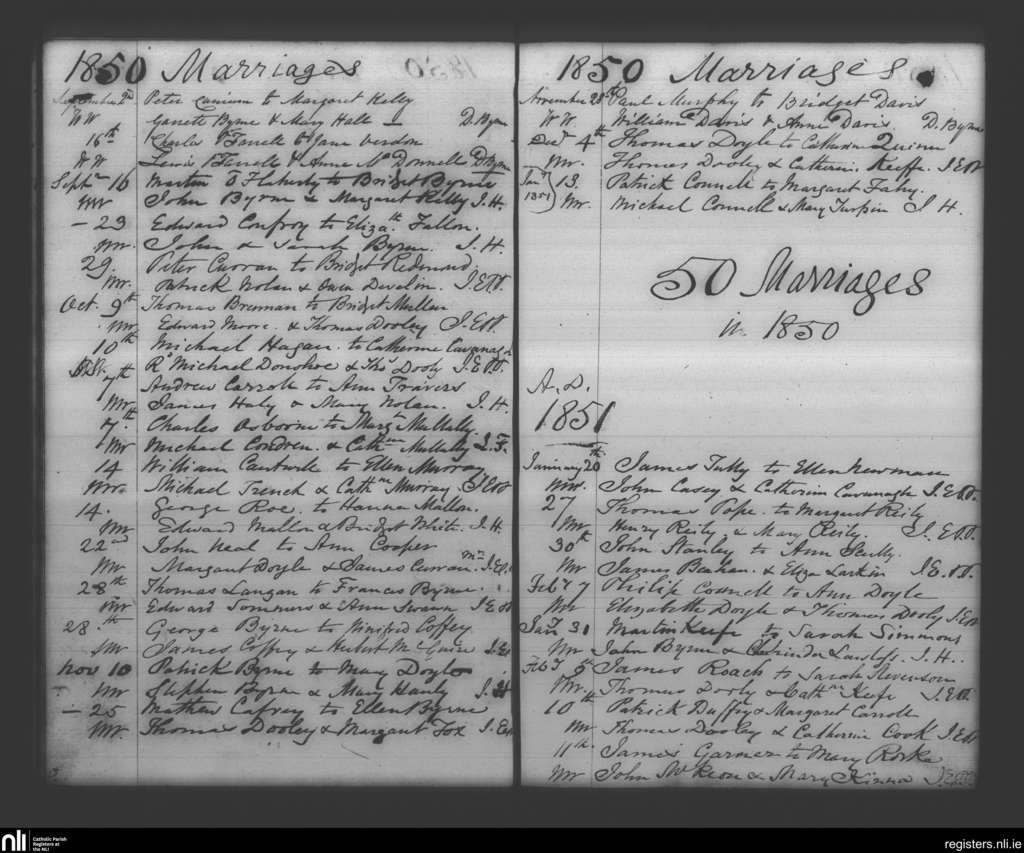 1850 Marriages
September 2nd Peter to Margaret Kelly
WW Garrett Byrne & Mary Halle D. Byrne
16th Charles Farrell to Jane Verdon
WW Lewis Farrelle & Anne McDonnelle D. Byrne
Septr 16 Martin O'Flaherty to Bridget Byrne
John Byrne & Margaret Kelly J. H.
- 23 Edward Confroy to Elizath Fallon.
John & Sarah Byrne. J. H.
29. Peter Curran to Bridget Redmond
Patrick Nolan & Owen Devalin.
Oct. 9th Thomas Brennan to Bridget Mullan
Edward Moore. & Thomas Dooley
10th Michael Hagan. to Catherine Cavanagh
Michael Donohoe & Thos Dooly
7th Andrew Carroll to Ann Travers
James Haly & Mary Nolan. J. H.
7th Charles Osborne to Margt Mullally.
Michael Condren. & Cathne Mullally J. F.
14 William Cantwell to Ellen Murray
Michael Trench & Cathne Murray.
14. George Roe. to Hanna Mallon.
Edward Mallon & Bridget White. J. H.
22nd John Neal to Ann Cooper
Margaret Doyle & James Curran.
28th Thomas Langan to Frances Byrne.
Edward Sommers & Ann Swann
28th George Byrne to Winifred Coffey
James Coffey & Hubert McGuire
Nov 10 Patrick Byrne to Mary Doyle
Stephen Byrne & Mary Hanly J. H
- 25 Mathew Cafrey to Ellen Byrne
Thomas Dooley & Margaret Fox
1850 Marriages
November 28th Paul Murphy to Bridget Davis
WW. William Davis & Anne Davis D. Byrne
Decr 4th Thomas Doyle to Catherine Quinn
Thomas Dooley & Catherine Keeffe.
Jany 1851 13. Patrick Connell to Margaret Fahy.
Michael Connell & Mary Turpin J H.
50 Marriages
in 1850
A.D.
1851
January 20th James Tully to Ellen Newman
John Casey & Catherine Cavanagh
27 Thomas Pope. to Margaret Reily
Henry Reily & Mary Reily.
30th John Stanley to Ann Scully.
James Beahan. & Eliza Larkin
Feby 7 Philip Connell to Ann Doyle
Elizabeth Doyle & Thomas Dooly
Jany 31 Martin Keefe to Sarah Simmons
John Byrne & J. H.
Feby 9th James Roach to Sarah Stevenson
Thomas Dooly & Cathne Keefe
10th Patrick Duffy & Margaret Carroll
Thomas Dooley & Catherine Cook
11th James Garner to Mary Rorke
John McKeon & Mary Kinna
nli Catholic Parish Registers at the NLI
registers.nli.ie